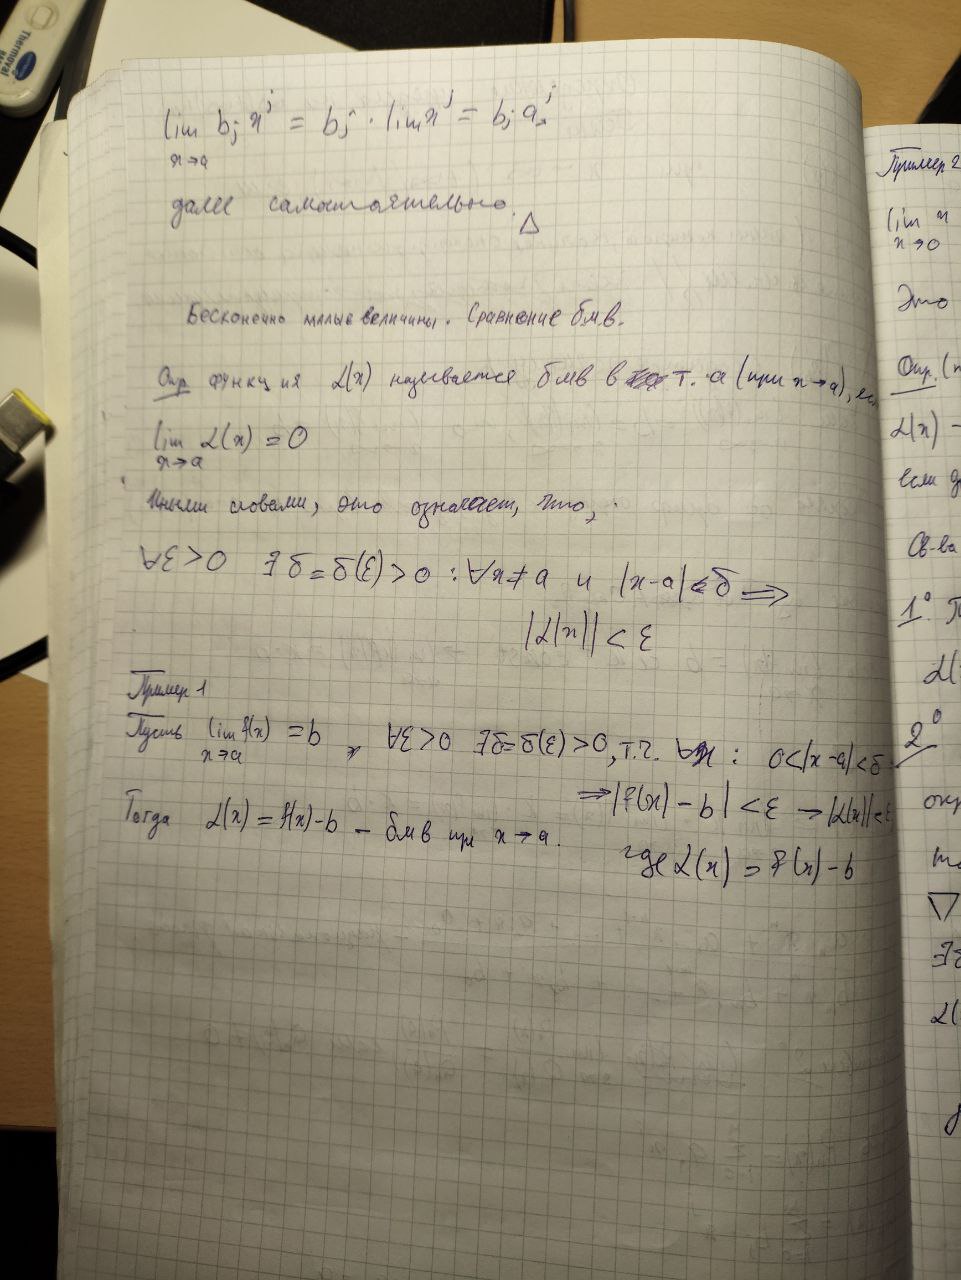 Thermoval
lim b_j x^j = b_j · lim x^j = b_j a^j
x→a
далее самостоятельно. △
Бесконечно малые величины. Сравнение бмв.
Опр функция α(x) называется бмв в т. a (при x→a), если
lim α(x) = 0
x→a
Иными словами, это означает, что,
∀ε>0 ∃δ=δ(ε)>0 : ∀x≠a и |x-a|<δ ⟹
|α(x)| < ε
Пример 1
Пусть lim f(x) = b, ∀ε>0 ∃δ=δ(ε)>0, т.ч. ∀x : 0<|x-a|<δ
x→a
⟹ |f(x) - b| < ε → |α(x)|<ε
Тогда α(x) = f(x)-b - бмв при x→a.
где α(x) = f(x)-b
Пример 2
lim x
x→0
Это
Опр. (
α(x) -
если
Св-ва
1°.
α(
2°
▽
α(